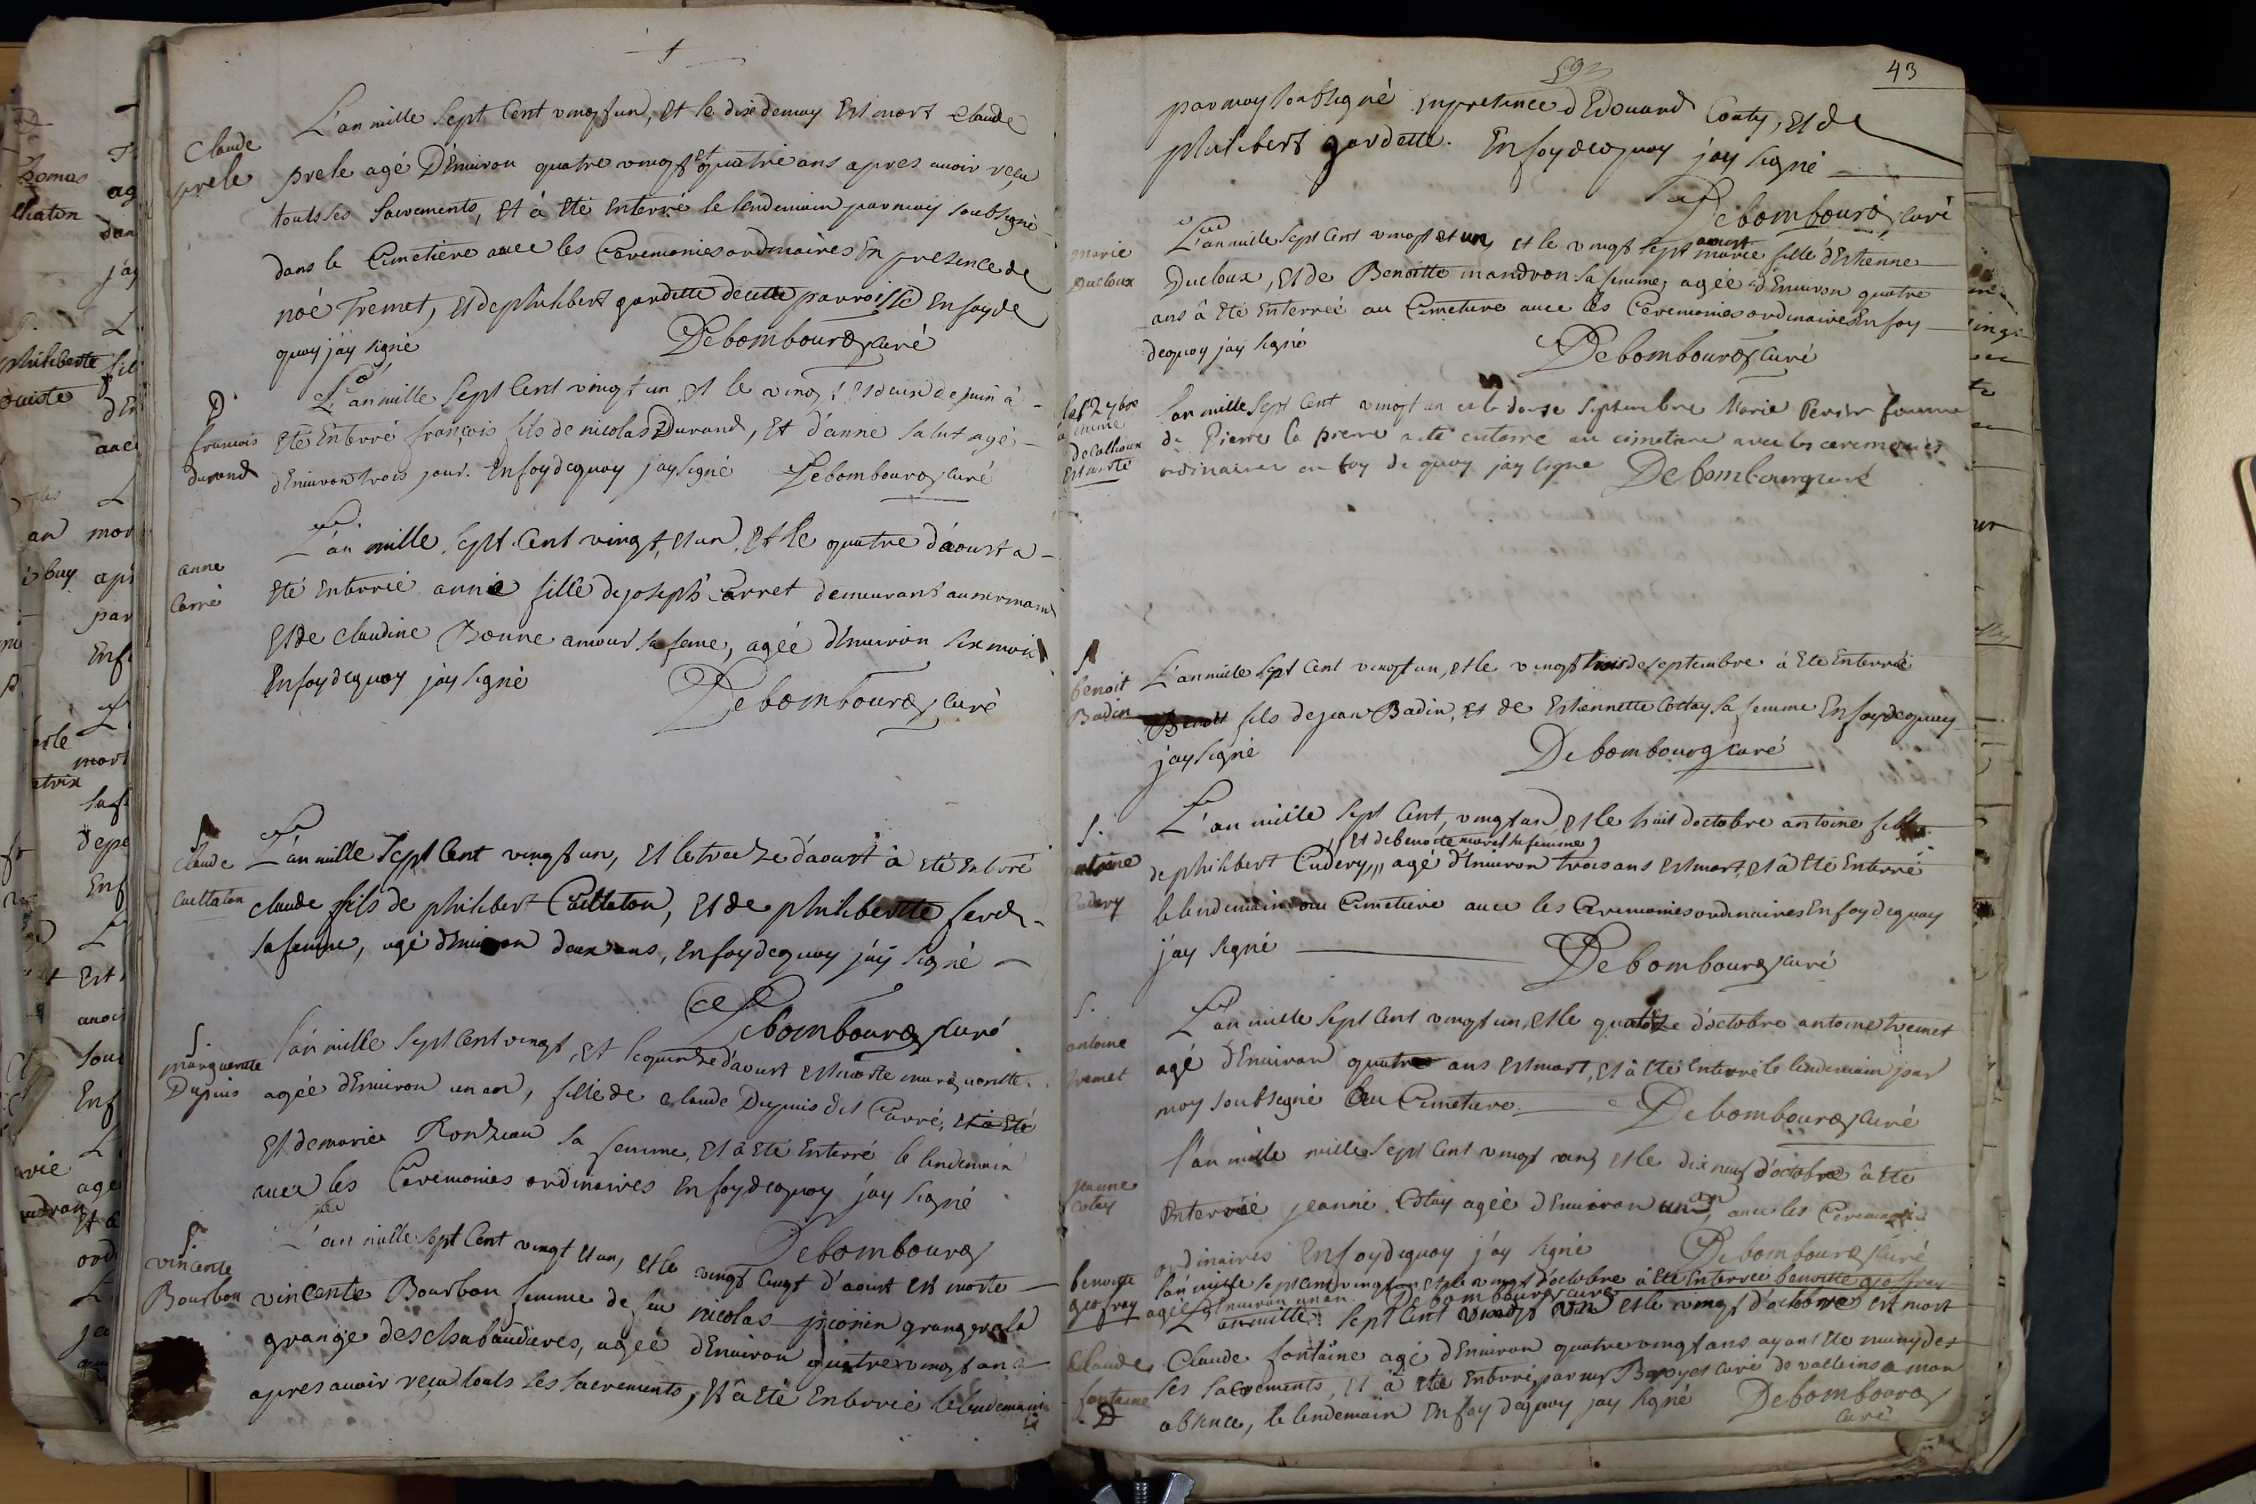 L'an mille sept Cent vingt un, Et le dix de may Est mort claude
Claude
prele
prele agé D'Environ quatre vingt et quatre ans apres avoir reçu
touts les Sacrements, Et à Eté Enterré le lendemain par moy soubsigné
dans le Cimetière avec les Ceremonies ordinaires En presence de
noé Tremet, Et de philibert gardette de cette parroisse En foy de
quoy j'ay signé
Debombourg curé
francois
durand
L'an mille Sept Cent vingt un Et le vingt Et deux de juin à
Eté Enterré françois fils de nicolas Durand, Et d'anne salut agé
d'Environ trois jour. En foy de quoy j'ay signé Debombourg curé
anne
Carré
L'an mille sept Cent vingt, Et un, Et le quatre d'aoust a
Eté Enterrée anne fille de joseph Carret demeurant au
Et de claudine Bonne amour sa feme, agée d'Environ six mois
En foy de quoy j'ay signé
Debombourg curé
claude
Cailleton
L'an mille Sept Cent vingt un, Et le treize d'aoust à Eté Enterré
claude fils de philibert Cailleton, Et de philiberte
sa femme, agé d'Environ deux ans, En foy de quoy j'ay signé
Debombourg curé
S.
marguerite
Dupuis
L'an mille Sept Cent vingt, Et le quinze d'aoust Est morte marguerite
agée d'Environ un an, fille de claude Dupuis dit Carré, et à Eté
Et de marie Rondeau sa femme, Et à Eté Enterré le lendemain
avec les Ceremonies ordinaires En foy de quoy j'ay signé
Debombourg
vincente
Bourbon
L'an mille sept Cent vingt Et un, Et le vingt d'aoust Est morte
vincente Bourbon femme de feu nicolas pionin granger à la
grange des chabaudieres, agée d'Environ quatre vingt ans
apres avoir reçu touts les sacrements, Et à Eté Enterrée le lendemain
43
par moy soubsigné En presence d'Edouard Couty, Et de
philibert gardette. En foy de quoy j'ay signé
Debombourg curé
marie
Ducloux
L'an mille Sept Cent vingt et un, et le vingt sept aoust marie fille d'Estienne
Ducloux, Et de Benoitte mandron sa femme, agée d'Environ quatre
ans à Eté Enterrée au Cimetiere avec les Ceremonies ordinaires En foy
de quoy j'ay signé
Debombourg curé
L'an mille Sept Cent vingt un et le doze Septembre Marie Perier femme
de Pierre la pierre a été enterré au cimetiere avec les ceremonies
ordinaires en foy de quoy jay signe Debombourg curé
benoit
Badin
L'an mille sept Cent vingt un, Et le vingt trois de septembre à Eté Enterré
Benoit fils de jean Badin, Et de Estiennette Cottay sa femme En foy de quoy
j'ay signé
Debombourg curé
S.
antoine
Cudery
L'an mille Sept Cent, vingt un, Et le huit d'octobre antoine fils
Et de benoite sa femme
de philibert Cudery, agé d'Environ trois ans Est mort, et à Eté Enterré
le lendemain au Cimetiere avec les Ceremonies ordinaires En foy de quoy
j'ay signé
Debombourg curé
S.
antoine
tremet
L'an mille Sept Cent vingt un, Et le quatorze d'octobre antoine tremet
agé d'Environ quatre ans Est mort, Et à Eté Enterré le lendemain par
moy soubsigné au Cimetiere.
Debombourg curé
jeanne
Cotay
l'an mille mille Sept Cent vingt un, Et le dix neuf d'octobre à Eté
Enterrée jeanne Cotay agée d'Environ un an, avec les Ceremonies
ordinaires En foy de quoy j'ay signé
Debombourg curé
benoitte
geofray
l'an mille sept cent vingt un Et le vingt d'octobre à Eté Enterrée benoitte geofray
agée d'Environ un an. Debombourg curé
Claude
fontaine
L'an mille Sept Cent vingt un Et le vingt d'octobre Est mort
Claude fontaine agé d'Environ quatre vingt ans ayant Eté muny des
ses sacrements, Et à Eté Enterré, par curé de valleins a mon
absence, le lendemain En foy de quoy j'ay signé Debombourg
curé